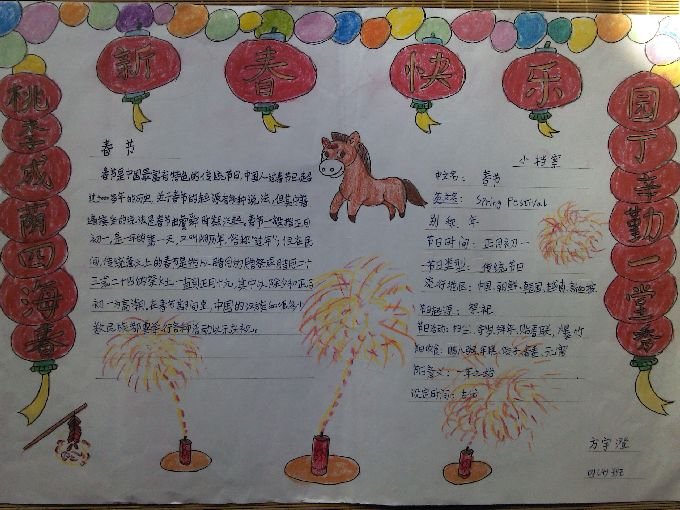 新春快乐
桃李成荫四海春
园丁辛勤一堂秀
春节
春节是中国最富有特色的传统节日,中国人过春节已超
过4000多年的历史,关于春节的起源有多种说法,但其中普
遍接受的说法是春节由虞舜时期兴起。春节一般指正月
初一,是一年的第一天,又叫阴历年,俗称"过年";但在民
间,传统意义上的春节是指从腊月初八的腊祭或腊月二十
三或二十四的祭灶,一直到正月十五,其中以除夕和正月
初一为高潮。在春节期间,中国的汉族和很多少
数民族都要举行各种活动以示庆祝。
小档案
中文名:春节
英文名:Spring Festival
别称:年
节日时间:正月初一
节日类型:传统节日
流行地区:中国,朝鲜,韩国,越南,新加坡
节日起源:祭祀
节日活动:扫尘,守岁,拜年,贴春联,爆竹
节日饮食:腊八粥,年糕,饺子,春卷,元宵
节日意义:一年之始
设定时间:古代
方宇澄
四(4)班